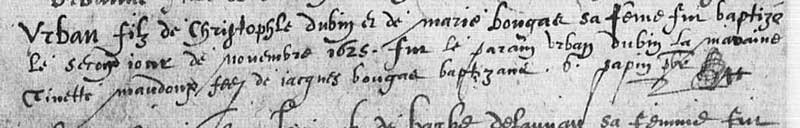 Urban filz de Christophle dubin et de marie bougas sa feme fut baptize
le second iour de novembre 1625. fut le parain urban dubin la maraine
maudoux de iacques bougas baptizans G. papin pbr
sa femme fut